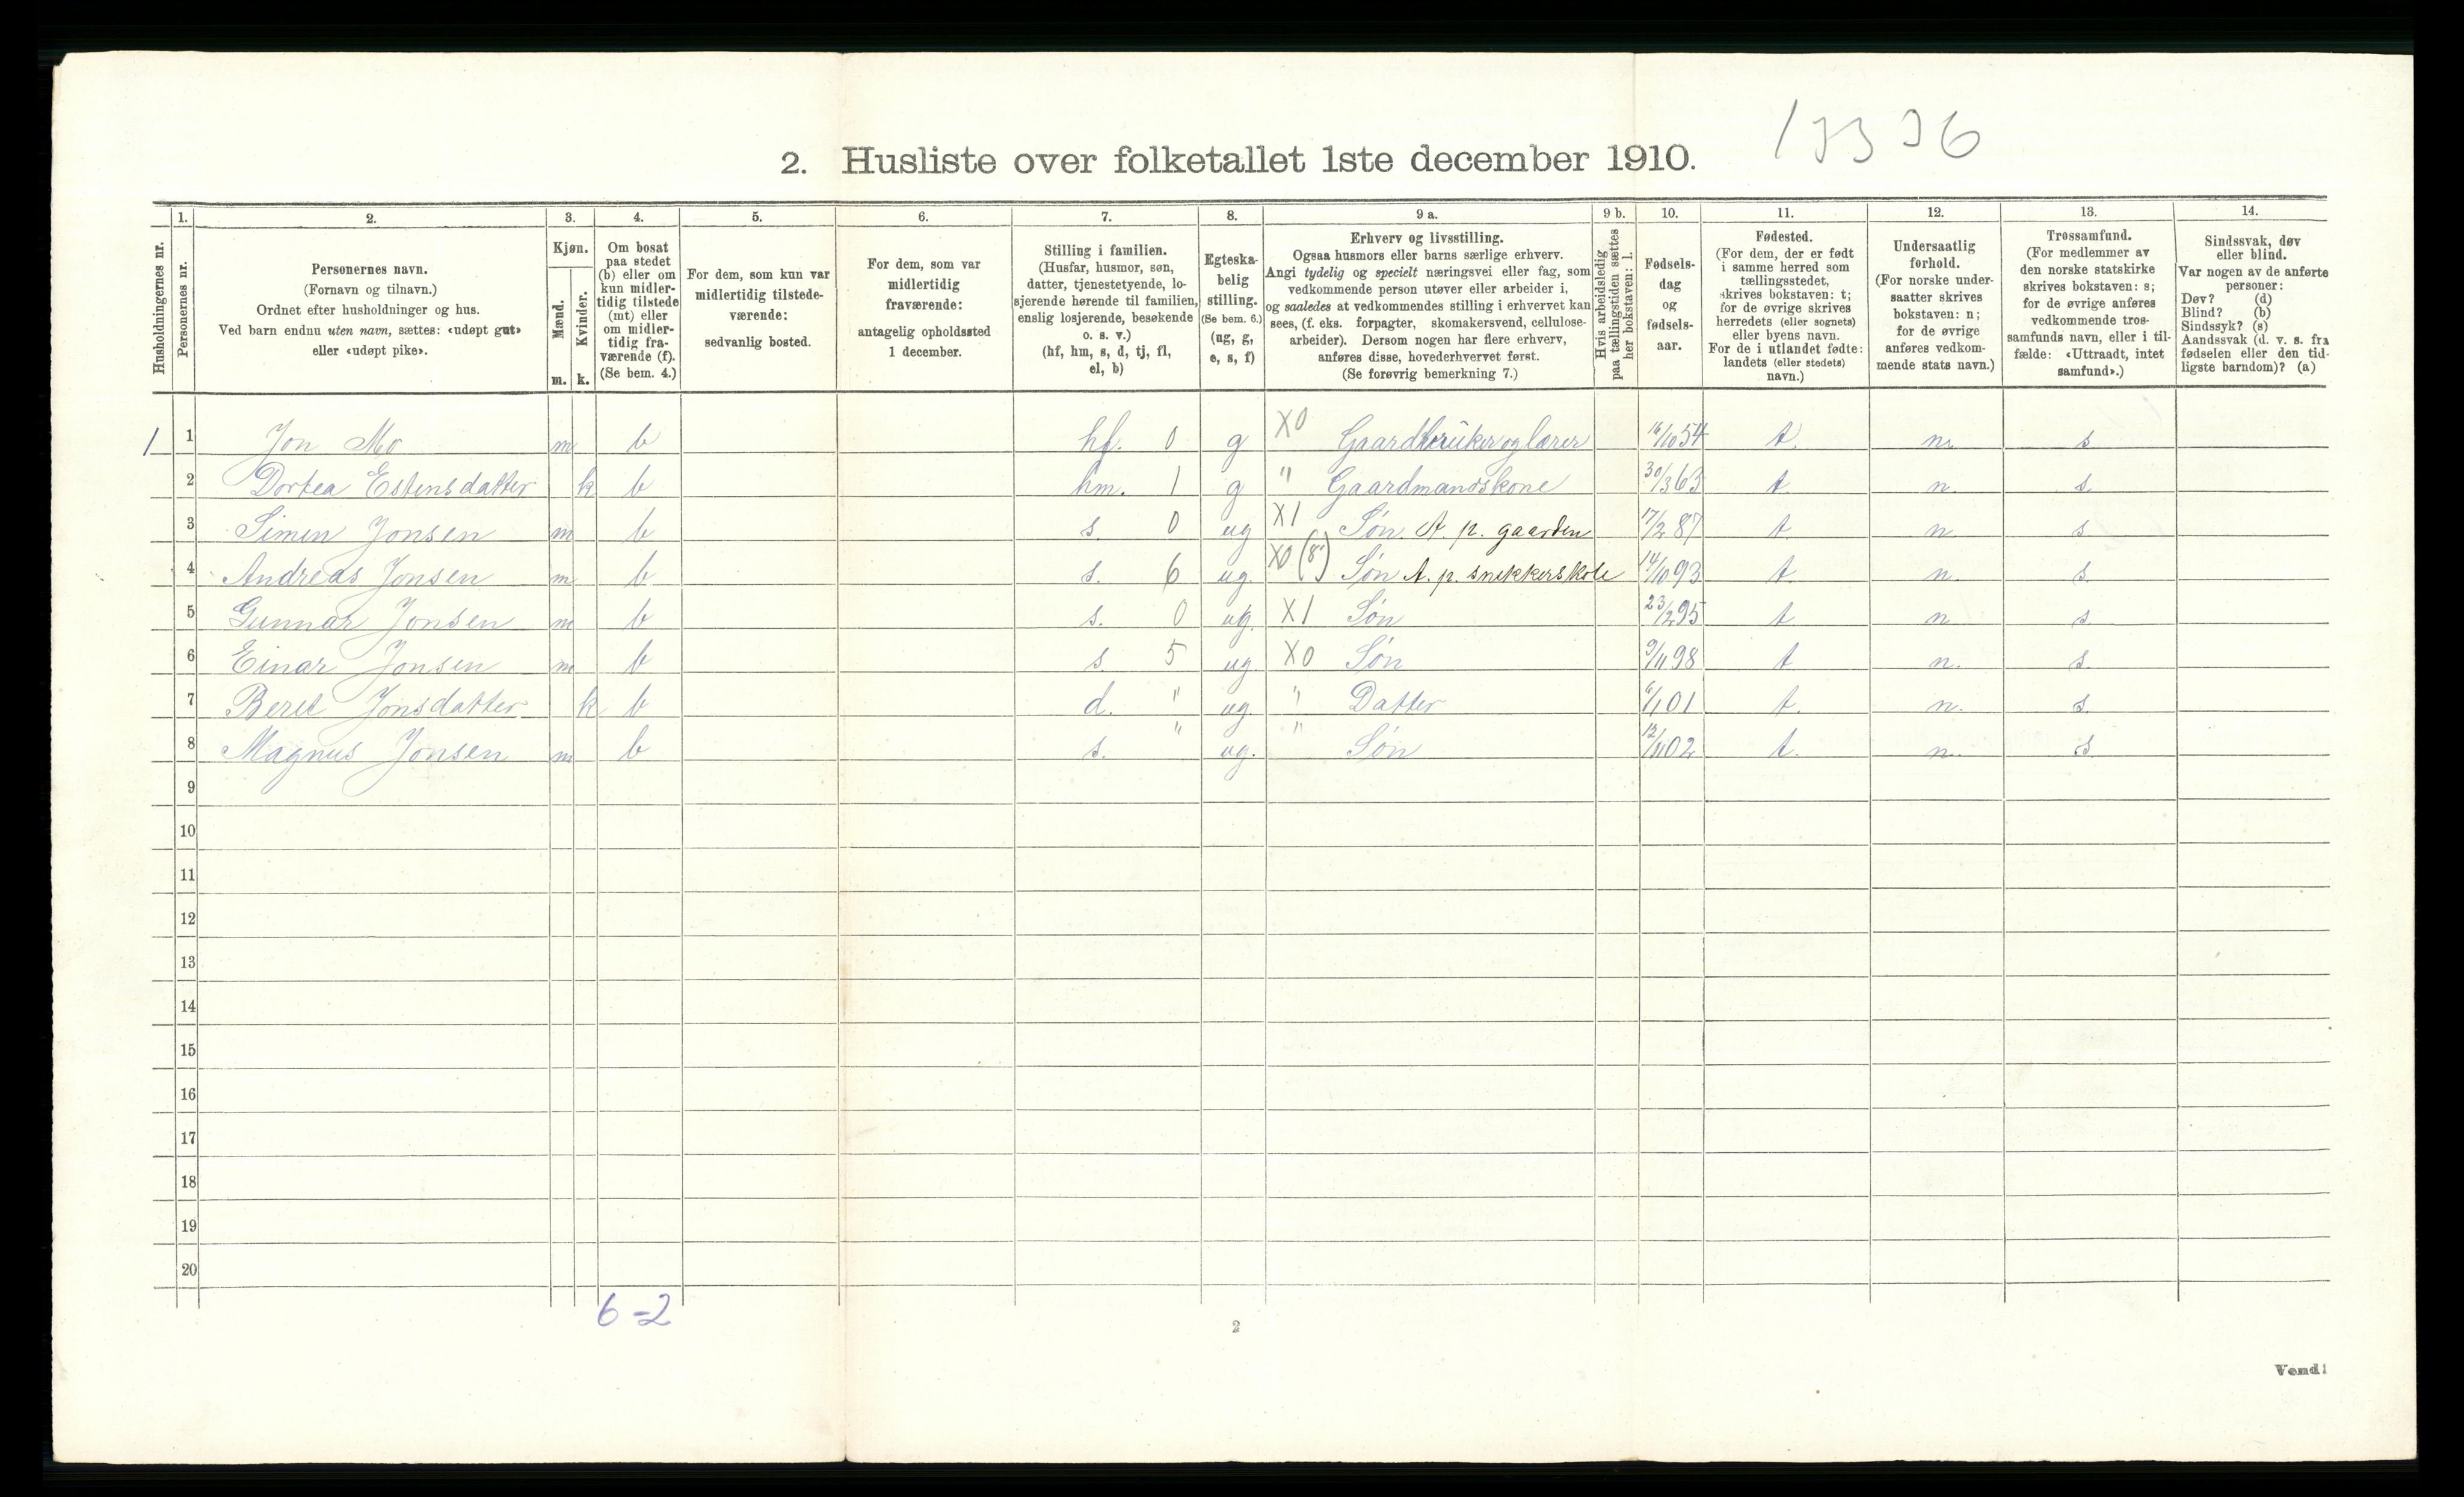 13336
2. Husliste over folketallet 1ste december 1910.
1. 2. 3. 4. 5. 6. 7. 8. 9 a. 9 b. 10. 11. 12. 13. 14.
Husholdningernes nr.
Personernes nr.
Personernes navn.
(Fornavn og tilnavn.)
Ordnet efter husholdninger og hus.
Ved barn endnu uten navn, sættes: «udøpt gut»
eller «udøpt pike».
Kjøn.
Mænd.
Kvinder.
m. k.
Om bosat
paa stedet
(b) eller om
kun midler-
tidig tilstede
(mt) eller
om midler-
tidig fra-
værende (f).
(Se bem. 4.)
For dem, som kun var
midlertidig tilstede-
værende:
sedvanlig bosted.
For dem, som var
midlertidig
fraværende:
antagelig opholdssted
1 december.
Stilling i familien.
(Husfar, husmor, søn,
datter, tjenestetyende, lo-
sjerende hørende til familien,
enslig losjerende, besøkende
o. s. v.)
(hf, hm, s, d, tj, fl,
el, b)
Egteska-
belig
stilling.
(Se bem. 6.)
(ug, g,
e, s, f)
Erhverv og livsstilling.
Ogsaa husmors eller barns særlige erhverv.
Angi tydelig og specielt næringsvei eller fag, som
vedkommende person utøver eller arbeider i,
og saaledes at vedkommendes stilling i erhvervet kan
sees, (f. eks. forpagter, skomakersvend, cellulose-
arbeider). Dersom nogen har flere erhverv,
anføres disse, hovederhvervet først.
(Se forøvrig bemerkning 7.)
Hvis arbeidsledig
paa tællingstiden sættes
her bokstaven: l.
Fødsels-
dag
og
fødsels-
aar.
Fødested.
(For dem, der er født
i samme herred som
tællingsstedet,
skrives bokstaven: t;
for de øvrige skrives
herredets (eller sognets)
eller byens navn.
For de i utlandet fødte:
landets (eller stedets)
navn.)
Undersaatlig
forhold.
(For norske under-
saatter skrives
bokstaven: n;
for de øvrige
anføres vedkom-
mende stats navn.)
Trossamfund.
(For medlemmer av
den norske statskirke
skrives bokstaven: s;
for de øvrige anføres
vedkommende tros-
samfunds navn, eller i til-
fælde: «Uttraadt, intet
samfund».)
Sindssvak, døv
eller blind.
Var nogen av de anførte
personer:
Døv? (d)
Blind? (b)
Sindssyk? (s)
Aandssvak (d. v. s. fra
fødselen eller den tid-
ligste barndom)? (a)
1 1 Jon Mo m b hf. 0 g X0 Gaardbruker og lærer 16/10 54 t. n. s
2 Dortea Estensdatter k b hm. 1 g " Gaardmandskone 30/3 63 t. n. s.
3 Simen Jonsen m b s. 0 ug X1 Søn. A. p. gaarden 17/2 87 t. n. s
4 Andreas Jonsen m b s. 6 ug. X0 (8) Søn A. p. snekkerskole 14/10 93 t. n. s.
5 Gunnar Jonsen m b s. 0 ug. X1 Søn 23/2 95 t n s.
6 Einar Jonsen m b s 5 ug. X0 Søn 9/11 98 t n. s.
7 Beret Jonsdatter k b d. " ug. " Datter 6/1 01 t. n. s.
8 Magnus Jonsen m b s. " ug. " Søn 12/11 02 t. n. s
9
10
11
12
13
14
15
16
17
18
19
20
6 - 2
2
Vend!